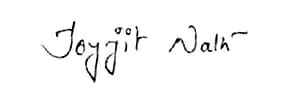 Joyjit Nath